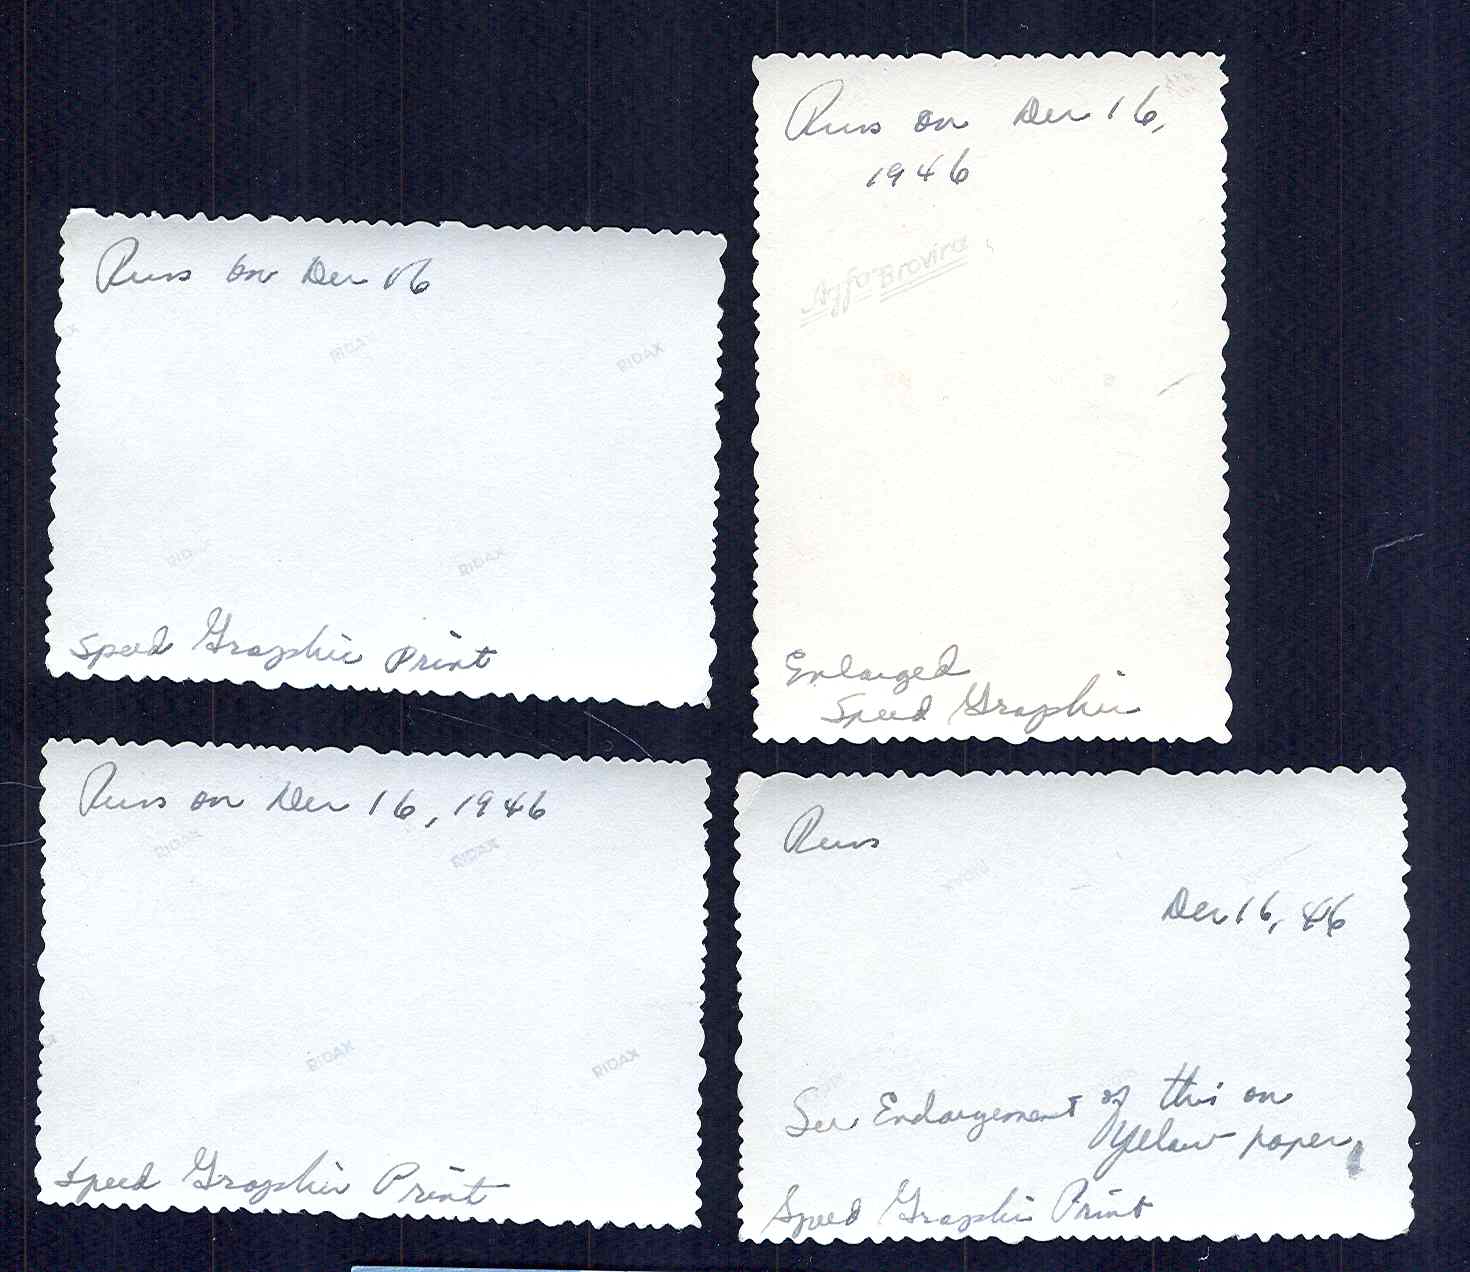 Russ on Dec 16
RIDAX
RIDAX
RIDAX
Speed Graphic Print
Russ on Dec 16,
1946
Agfa Brovira
Enlarged
Speed Graphic
Russ on Dec 16, 1946
RIDAX
RIDAX
RIDAX
RIDAX
Speed Graphic Print
Russ
RIDAX
Dec 16, 46
See Enlargement of this on
Yellow paper
Speed Graphic Print